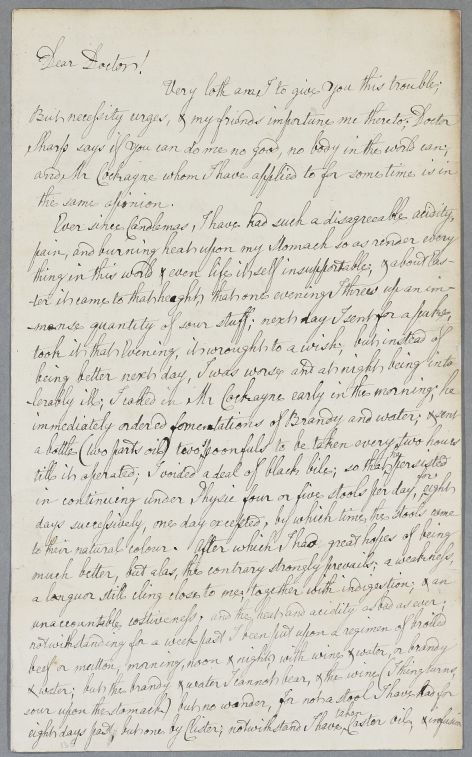 Dear Doctor!
Very loth am I to give You this trouble;
But necessity urges, & my friends importune me thereto; Doctor
Sharp says if You can do me no good, no body in the world can;
and Mr Cockrayne whom I have applied to for some time is in
the same opinion.
Ever since Candlemas, I have had such a disagreeable acidity,
pain, and burning heat upon my Stomach so as render every
thing in this world & even life itself insupportable, & about Eas-
ter it came to that height that one evening I threw up an im-
mense quantity of sour stuff; next day I sent for a puke,
took it that Evening, it wrought to a wish, but instead of
being better next day, I was worse and at night being into-
lerably ill; I called in Mr Cockrayne early in the morning; he
immediately ordered fomentations of Brandy and water; & sent
a bottle (two parts oil) two spoonfuls to be taken every two hours
till it operated; I voided a deal of black bile; so that by persisted
in continuing under Physic four or five stools per day, for eight
days successively, one day excepted, by which time, the stools came
to their natural colour. After which I had great hopes of being
much better, but alas, the contrary strongly prevails; a weakness,
a languor still cling close to me, together with indigestion; & an
unaccountable costiveness; and the heat and acidity as bad as ever;
notwithstanding for a week past I been put upon a regimen of broiled
beef or mutton, morning, noon & night, with wine & water, or brandy
& water; but the brandy & water I cannot bear, & the wine (I thing turns
sour upon the stomach) but no wonder, for not a stool I have had for
eight days past, but one by Clister; notwithstand I have taken Castor oil, & infusion